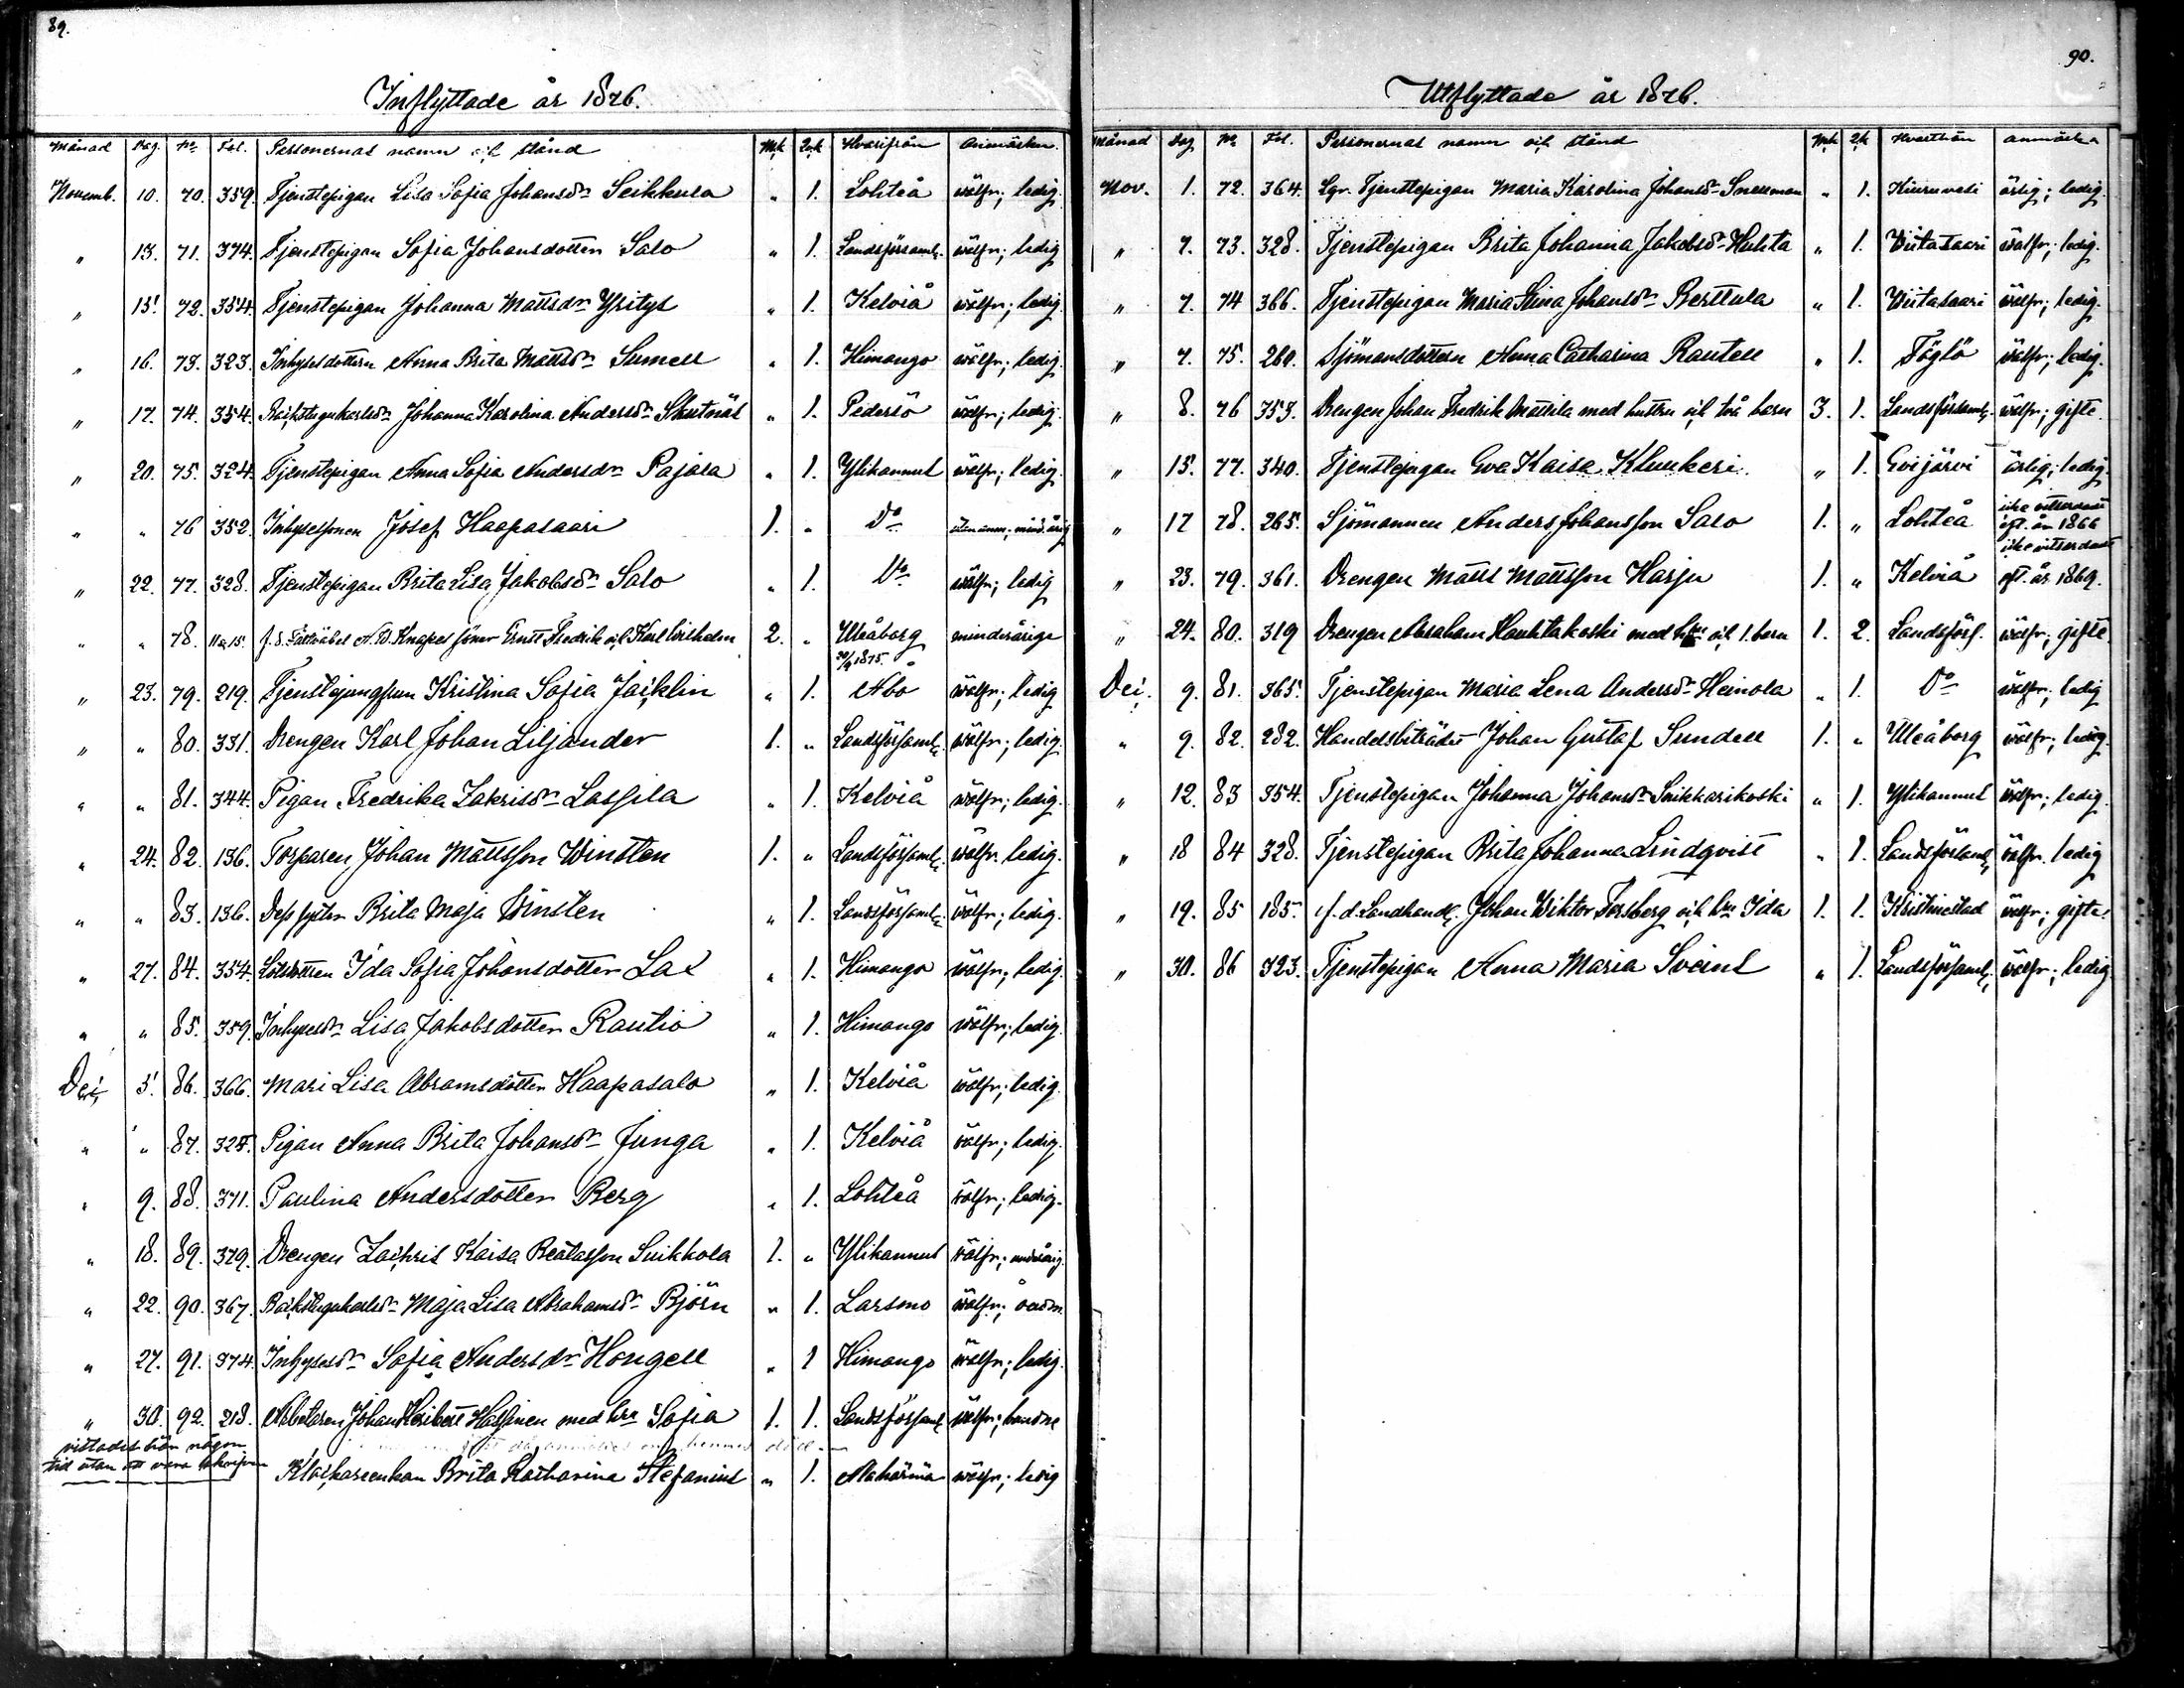 89.
Inflyttade år 1876.
Månad Dag. No. Fol. Personernas namn och stånd Mk Qvk Hvarifrån Anmärkn.
Novemb. 10. 70. 359. Tjenstepigan Lisa Sofia Johansdr Seikkula " 1. Lohteå wälfr; ledig
" 13. 71. 374. Tjenstepigan Sofia Johansdotter Salo " 1. Landsförsaml. wälfr; ledig
" 15. 72. 354. Tjenstepigan Johanna Mattsdr Yritys " 1. Kelviå wälfr; ledig.
" 16. 73. 323. Inhysesdottern Anna Brita Mattsdr Sumell " 1. Himango wälfr; ledig.
" 17. 74. 354. Backstugukarlsdr Johanna Karolina Andersdr Skutnäs " 1. Pedersö wälfr; ledig.
" 20. 75. 324. Tjenstepigan Anna Sofia Andersdr Pajala " 1. Ylikannus wälfr; ledig.
" " 76 352. Inhysessonen Josef Haapasaari 1. " Do minderårig
" 22. 77. 328. Tjenstepigan Brita Lisa Jakobsdr Salo " 1. Do wälfr; ledig
" " 78. 11 a 15. f. d. A. W. Knapes söner Ernst Fredrik och Karl 2. " Uleåborg minderåriga
" 23. 79. 219. Tjenstejungfrun Kristina Sofia Jäcklin " 1. 30/9 1875. Åbo wälfr; ledig
" " 80. 331. Drengen Karl Johan Liljander 1. " Landsförsaml. wälfr; ledig.
" " 81. 344. Pigan Fredrika Zakrisdr Lassila " 1. Kelviå wälfr; ledig.
" 24. 82. 136. Torparen Johan Mattsson Winsten 1. " Landsförsaml. wälfr. ledig.
" " 83. 136. Dess syster Brita Maja Winsten " 1. Landsförsaml. wälfr; ledig.
" 27. 84. 354. Ida Sofia Johansdotter Lax " 1. Himango wälfr; ledig.
" " 85. 359. Inhysesdr Lisa Jakobsdotter Rautio " 1. Himango wälfr; ledig.
Dec. 5. 86. 366. Mari Lisa Abramsdotter Haapasalo " 1. Kelviå wälfr; ledig.
" " 87. 324. Pigan Anna Brita Johansdr Junga " 1. Kelviå wälfr; ledig.
" 9. 88. 371. Paulina Andersdotter Berg " 1. Lohteå wälfr; ledig.
" 18. 89. 379. Drengen Zachris Kaisa Beatasson Suikkola 1. " Ylikannus wälfr; minderårig.
" 22. 90. 367. Backstugukarlsdr Maja Lisa Abrahamsdr Björn " 1. Larsmo wälfr;
" 27. 91. 374. Inhysesdr Sofia Andersdr Hongell " 1 Himango wälfr; ledig.
" 30. 92. 218. Arbetaren Johan Heribert Hassinen med hu Sofia 1. 1. Landsförsaml. wälfr;
vistades här någon
tid utan att vara inskrifven
Klockareenkan Brita Katharina Stefanius " 1. Alahärmä wälfr; ledig
90.
Utflyttade år 1876.
Månad Dag No Fol. Personernas namn och stånd Mk Qk Hvarthän anmärkn
Nov. 1. 72. 364. Tjenstepigan Maria Karolina Johansdr Snellman " 1. Kiuruvesi ärlig; ledig.
" 7. 73. 328. Tjenstepigan Brita Johanna Jakobsdr Huhta " 1. Wiitasaari wälfr; ledig.
" 7. 74 366. Tjenstepigan Maria Stina Johansdr Berttula " 1. Wiitasaari wälfr; ledig.
" 7. 75. 260. Sjömansdottern Anna Catharina Rautell " 1. Föglö wälfr; ledig.
" 8. 76 353. Drengen Johan Fredrik Mattila med hustru och två barn 3. 1. Landsförsaml. wälfr; gifte.
" 15. 77. 340. Tjenstepigan Eva Kaisa Kluukeri " 1. Evijärvi ärlig; ledig.
" 17 78. 265. Sjömannen Anders Johansson Salo 1. " Lohteå icke eft. år 1866
" 23. 79. 361. Drengen Matts Mattsson Harju 1. " Kelviå icke eft. år 1869.
" 24. 80. 319 Drengen Abraham Hauhtakoski med hu och 1. barn 1. 2. Landsförs. wälfr; gifte
Dec. 9. 81. 365. Tjenstepigan Maria Lena Andersdr Heinola " 1. Do wälfr; ledig
" 9. 82. 282. Handelsbiträdet Johan Gustaf Sundell 1. " Uleåborg wälfr; ledig.
" 12. 83 354. Tjenstepigan Johanna Johansdr Snikkarikoski " 1. Ylikannus wälfr; ledig.
" 18 84 328. Tjenstepigan Brita Johanna Lindqvist " 1. Landsförsaml. wälfr. ledig
" 19. 85 185. f. d. Landhandl. Johan Wiktor Forsberg och hu Ida 1. 1. Kristinestad wälfr; gifte.
" 30. 86 323. Tjenstepigan Anna Maria Sveins " 1. Landsförsaml. wälfr; ledig